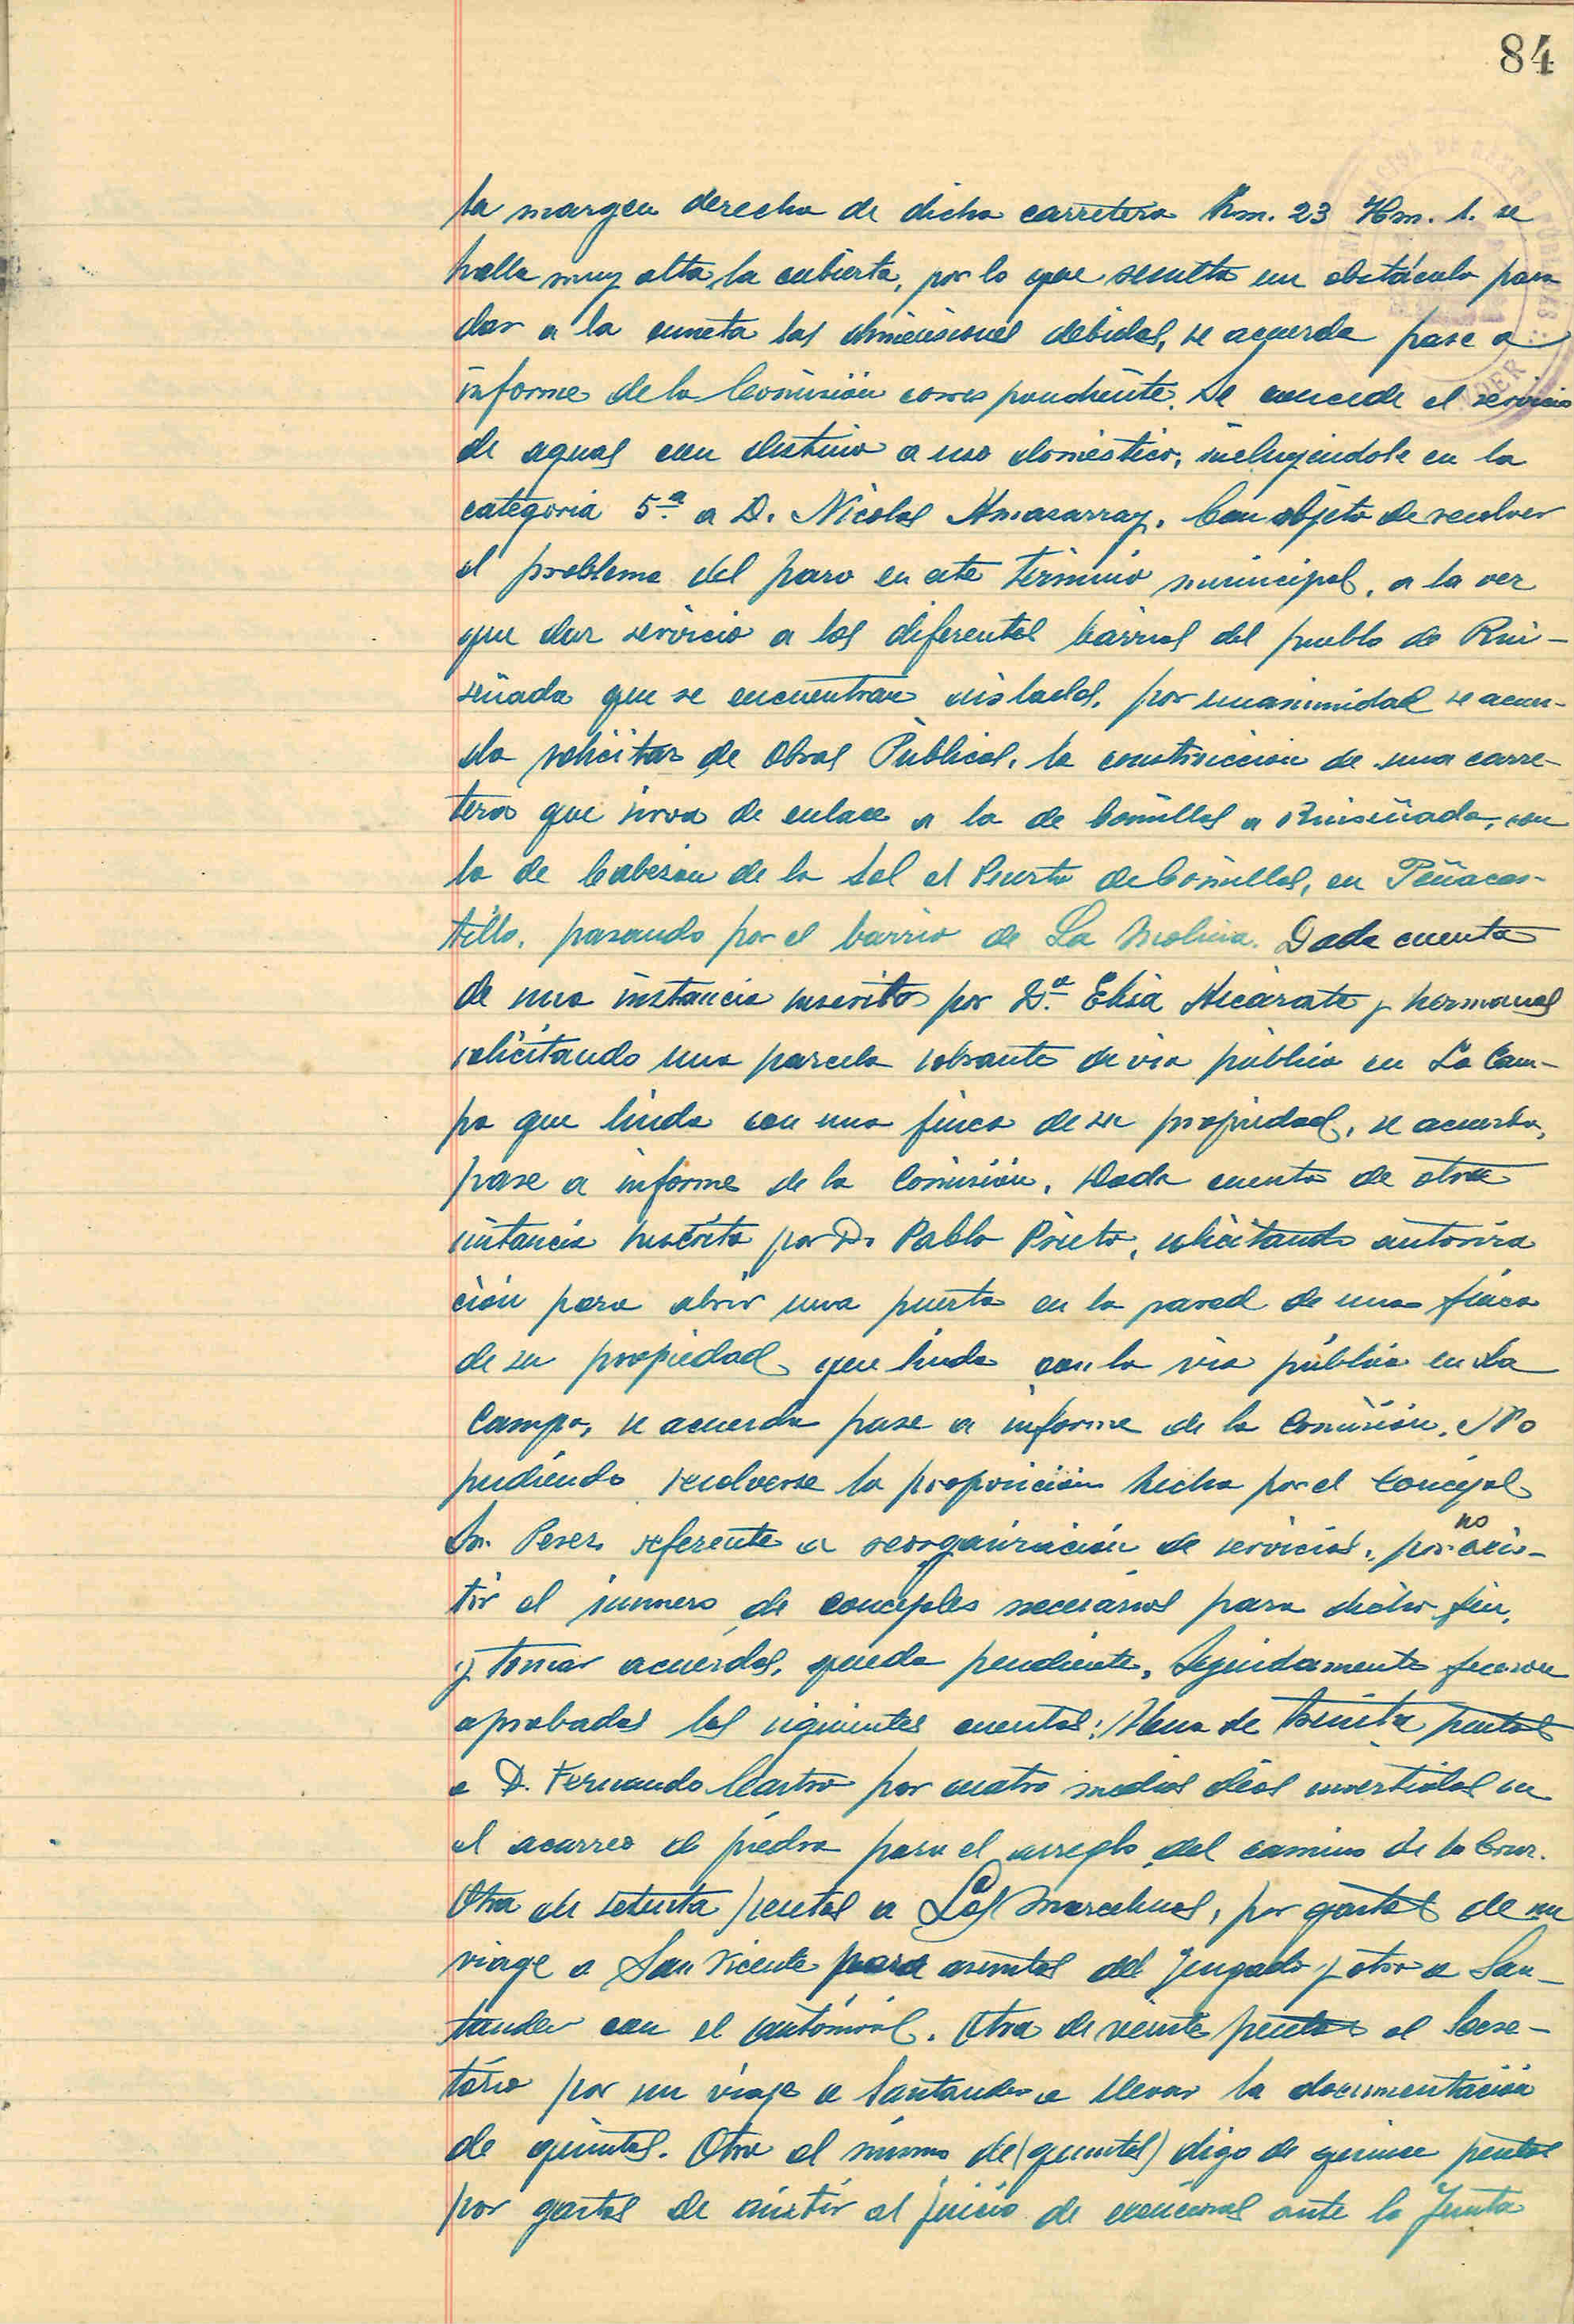 84
la margen derecha de dicha carretera Km. 23 Hm. 1. se
halla muy alta la cubierta, por lo que resulta un obstáculo para
dar a la cuneta las dimensiones debidas, se acuerda pase a
informe de la Comisión correspondiente. Se concede el servicio
de aguas con destino a uso doméstico, incluyéndole en la
categoria 5ª a D. Nicolas Amasarray. Con objeto de resolver
el problema del paro en este término municipal, a la vez
que dar servicio a los diferentes barrios del pueblo de Rui-
señada que se encuentran aislados, por unanimidad se acuer-
da solicitar de Obras Públicas, la construccion de una carre-
tera que sirva de enlace a la de Comillas a Ruiseñada, con
la de Cabezon de la Sal al Puerto de Comillas, en Peñacas-
tillo, pasando por el barrio de La Molina. Dada cuenta
de una instancia suscrita por Dª Elisa Azcárate y hermanos
solicitando una parcela sobrante de via pública en La Cam-
pa que linda con una finca de su propiedad, se acuerda,
pase a informe de la Comisión. Dada cuenta de otra
instancia suscrita por D. Pablo Prieto, solicitando autoriza
ción para abrir una puerta en la pared de una finca
de su propiedad que linda con la via pública en La
Campa, se acuerda pase a informe de la Comisión. No
pudiendo resolverse la proposición hecha por el concejal
Sr. Perez referente a reorganización de servicios, por no asis-
tir el número de concejales necesarios para dicho fin,
y tomar acuerdos, queda pendiente. Seguidamente fueron
aprobadas las siguientes cuentas: Una de treinta pesetas
a D. Fernando Castro por cuatro medios dias invertidos en
el acarreo de piedra para el arreglo del camino de la Cruz.
Otra de setenta pesetas a Los Marcelinos, por gastos de un
viage a San Vicente para asuntos del Juzgado y otro a San-
tander con el automóvil. Otra de veinte pesetas al Secre-
tário por un viaje a Santander a llevar la documentación
de quintas. Otra al mismo de (quintas) digo de quince pesetas
por gastos de asistir al juicio de exenciones ante la Junta